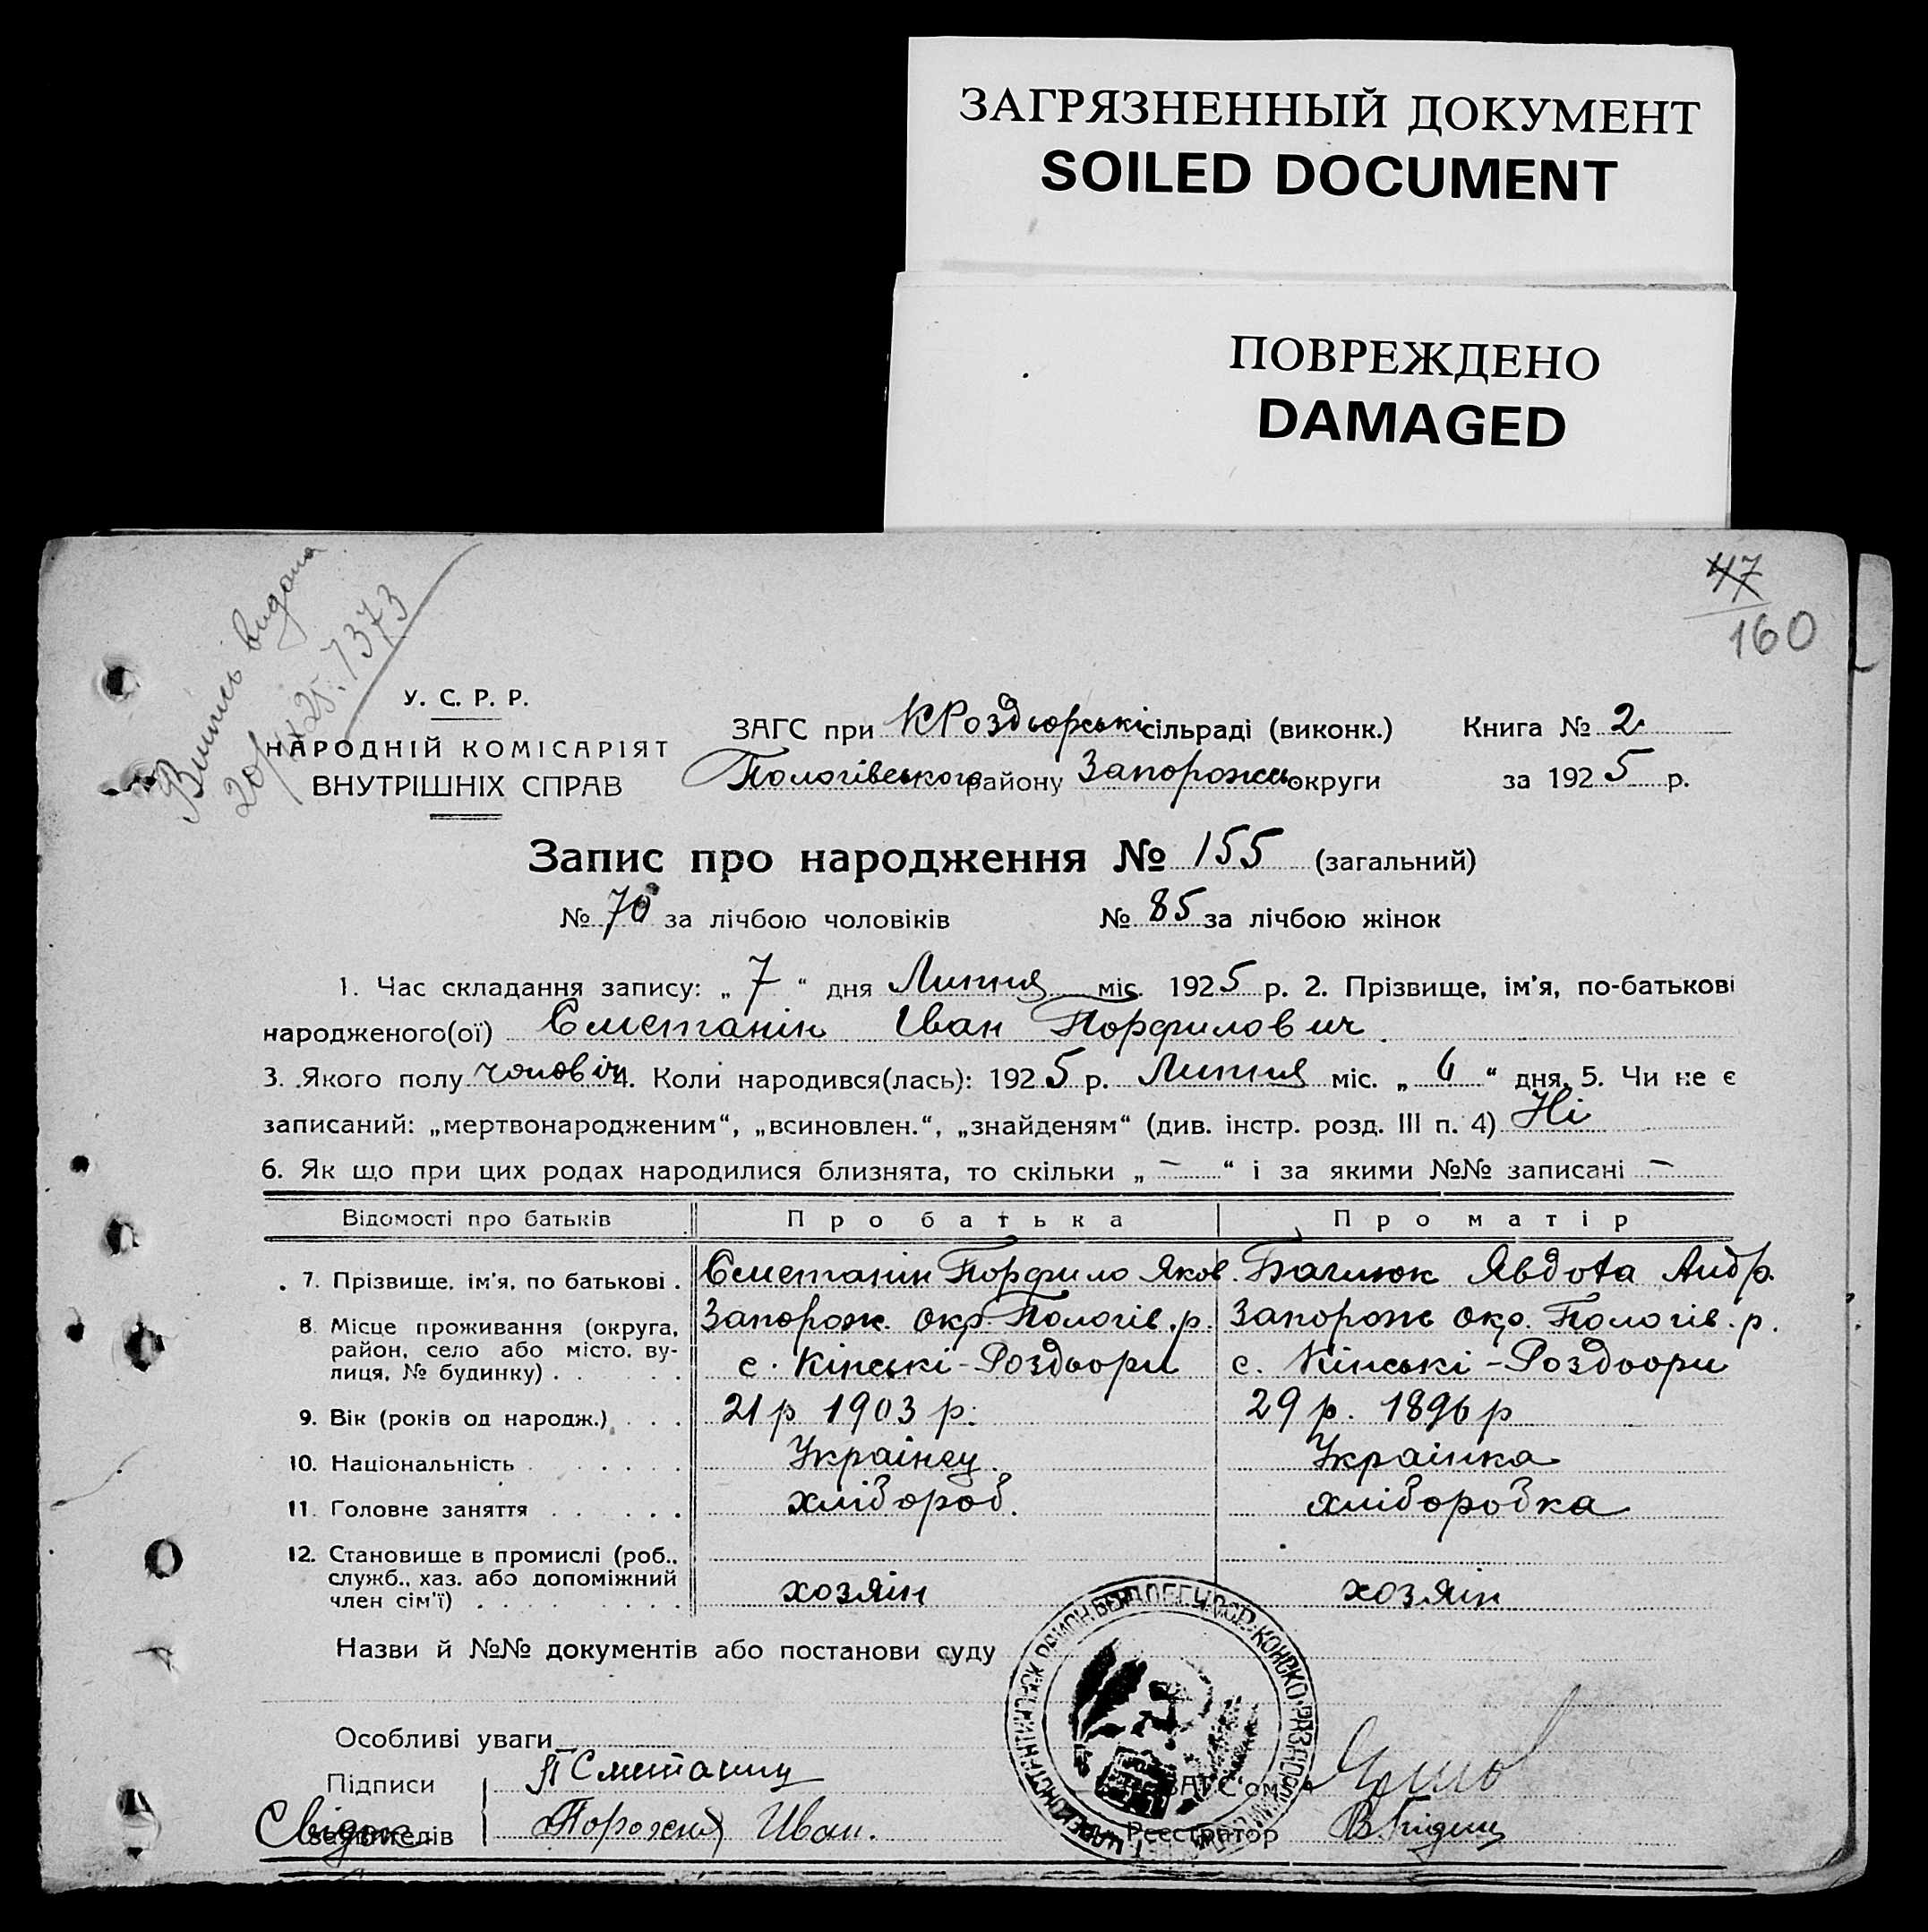 ЗАГРЯЗНЕННЫЙ ДОКУМЕНТ
SOILED DOCUMENT
ПОВРЕЖДЕНО
DAMAGED
47
160
Випись видана
7373
У. С. Р. Р.
НАРОДНІЙ КОМІСАРІЯТ
ВНУТРІШНІХ СПРАВ
ЗАГС при КРоздьорські сільраді (виконк.) Книга № 2
Пологівського району Запорожсь округи за 1925 р.
Запис про народження № 155 (загальний)
№ 70 за лічбою чоловіків № 85 за лічбою жінок
1. Час складання запису: „ 7 “ дня Липня міс. 1925 р. 2. Прізвище, ім'я, по-батькові
народженого(ої) Сметанін Іван Порфилович
3. Якого полу чоловіч 4. Коли народився(лась): 1925 р. Липня міс. „ 6 “ дня, 5. Чи не є
записаний: „мертвонародженим“, „всиновлен.“, „знайденям“ (див. інстр. розд. III п. 4) Ні
6. Як що при цих родах народилися близнята, то скільки „ – “ і за якими №№ записані –
Відомості про батьків Про батька Про матір
7. Прізвище, ім'я, по батькові . Сметанін Порфило Яков. Явдота Андр.
8. Місце проживання (округа, Запорож. окр. Пологів. р. Запорожс окр. Пологів. р.
район, село або місто, ву- с. Кінські-Роздьори с. Кінські-Роздори
лиця, № будинку) . . . . .
9. Вік (років од народж.) . . . 21 р 1903 р. 29 р. 1896 р
10. Національність . . . . . Українец. Українка
11. Головне заняття . . . . . . хлібороб. хліборобка
12. Становище в промислі (роб.,
служб., хаз. або допоміжний хозяін хозяін
член сім'ї) . . . . . . . . .
Назви й №№ документів або постанови суду
Особливі уваги
Підписи П Сметаниц ЗАГС'ом
Свідок
заявителів Иван. Реєстратор